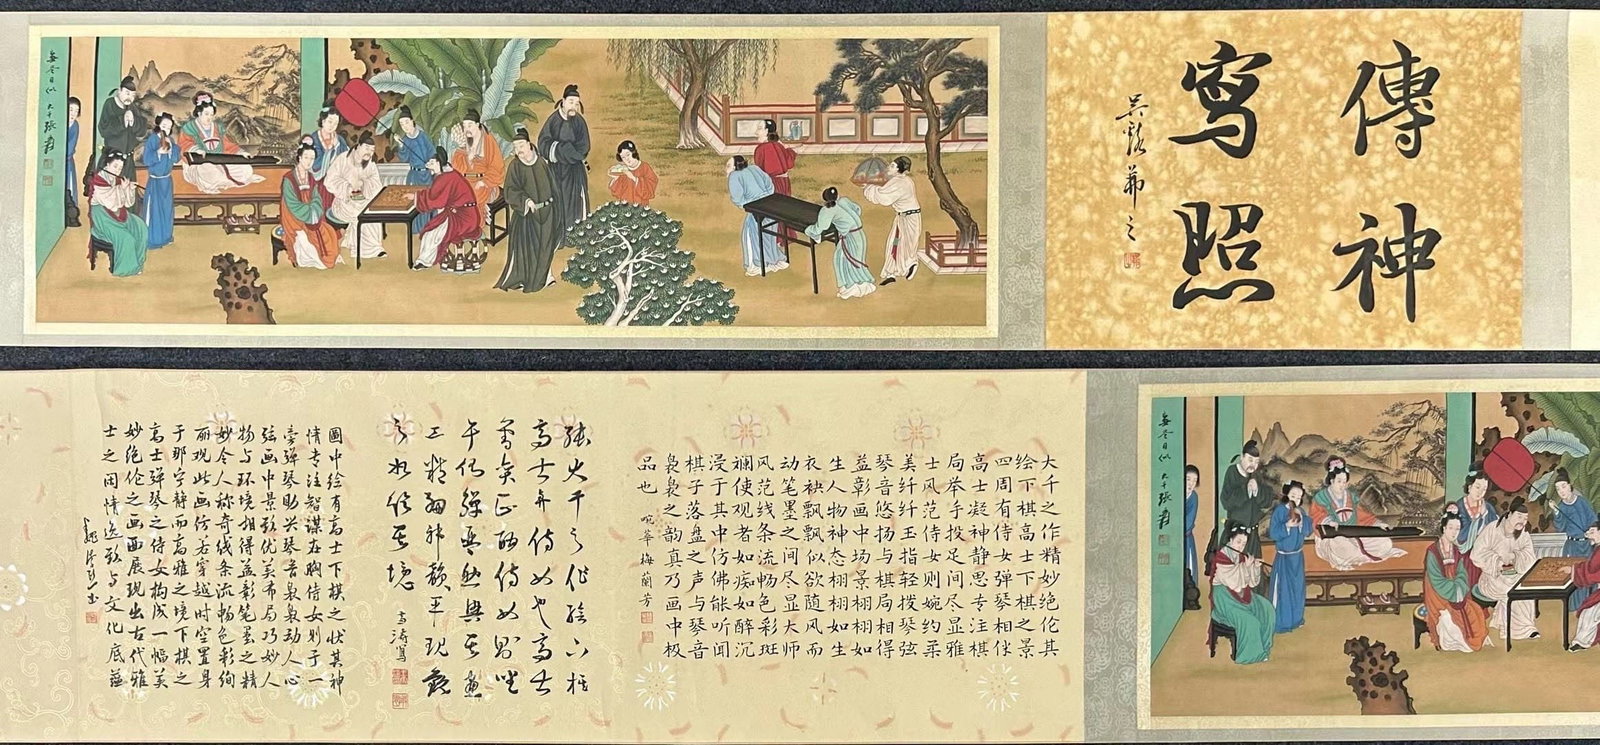 傳神
寫照
之
大千張爰
大千之作精妙绝伦其
绘下棋高士下棋之景
四周有侍女弹琴相伴
高士凝神静思专注棋
局举手投足间尽显雅
士风范侍女则婉约柔
美纤纤玉指轻拨琴弦
琴音悠扬与棋局相得
益彰画中场景栩栩如
生人物神态栩栩如生
衣袂飘飘似欲随风而
动笔墨之间尽显大师
风范线条流畅色彩斑
斓使观者如痴如醉沉
浸于其中仿佛能听闻
棋子落盘之声与琴音
袅袅之韵真乃画中极
品也 畹華梅蘭芳
张大千之作绘下棋
高士并侍女也高士
奕正酣侍女
于侧操琴助兴其画
工精细神韵 现观
之如临其境 雪濤寫
圖中绘有高士下棋之状其神
情专注智谋在胸侍女则于一
旁弹琴助兴琴音袅袅动人心
弦画中景致优美布局巧妙人
物与环境相得益彰笔墨之精
妙令人称奇线条流畅色彩绚
丽观此画仿若穿越时空置身
于那宁静而高雅之境下棋之
高士弹琴之侍女构成一幅美
妙绝伦之画面展现出古代雅
士之闲情逸致与文化底蕴
大千張爰